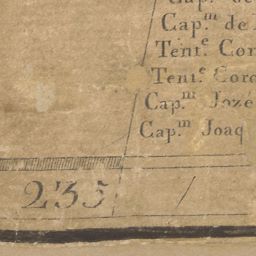 Cap.m de
Tent.e Cor
Tent.e Coro
Cap.m Jozé
Cap.m Joaq
235